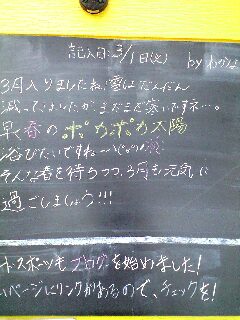 記入日:3/1(火) by わかな
3月入りましたね!雪はだんだん
減ってはいたが、まだまだ寒いですネ…。
早く春のポカポカ太陽
浴びたいですね〜
そんな春を待ちつつ、3月も元気に
過ごしましょう!!!
トスポーツもブログを始めました!
ムページにリンクがあるので、チェックを!